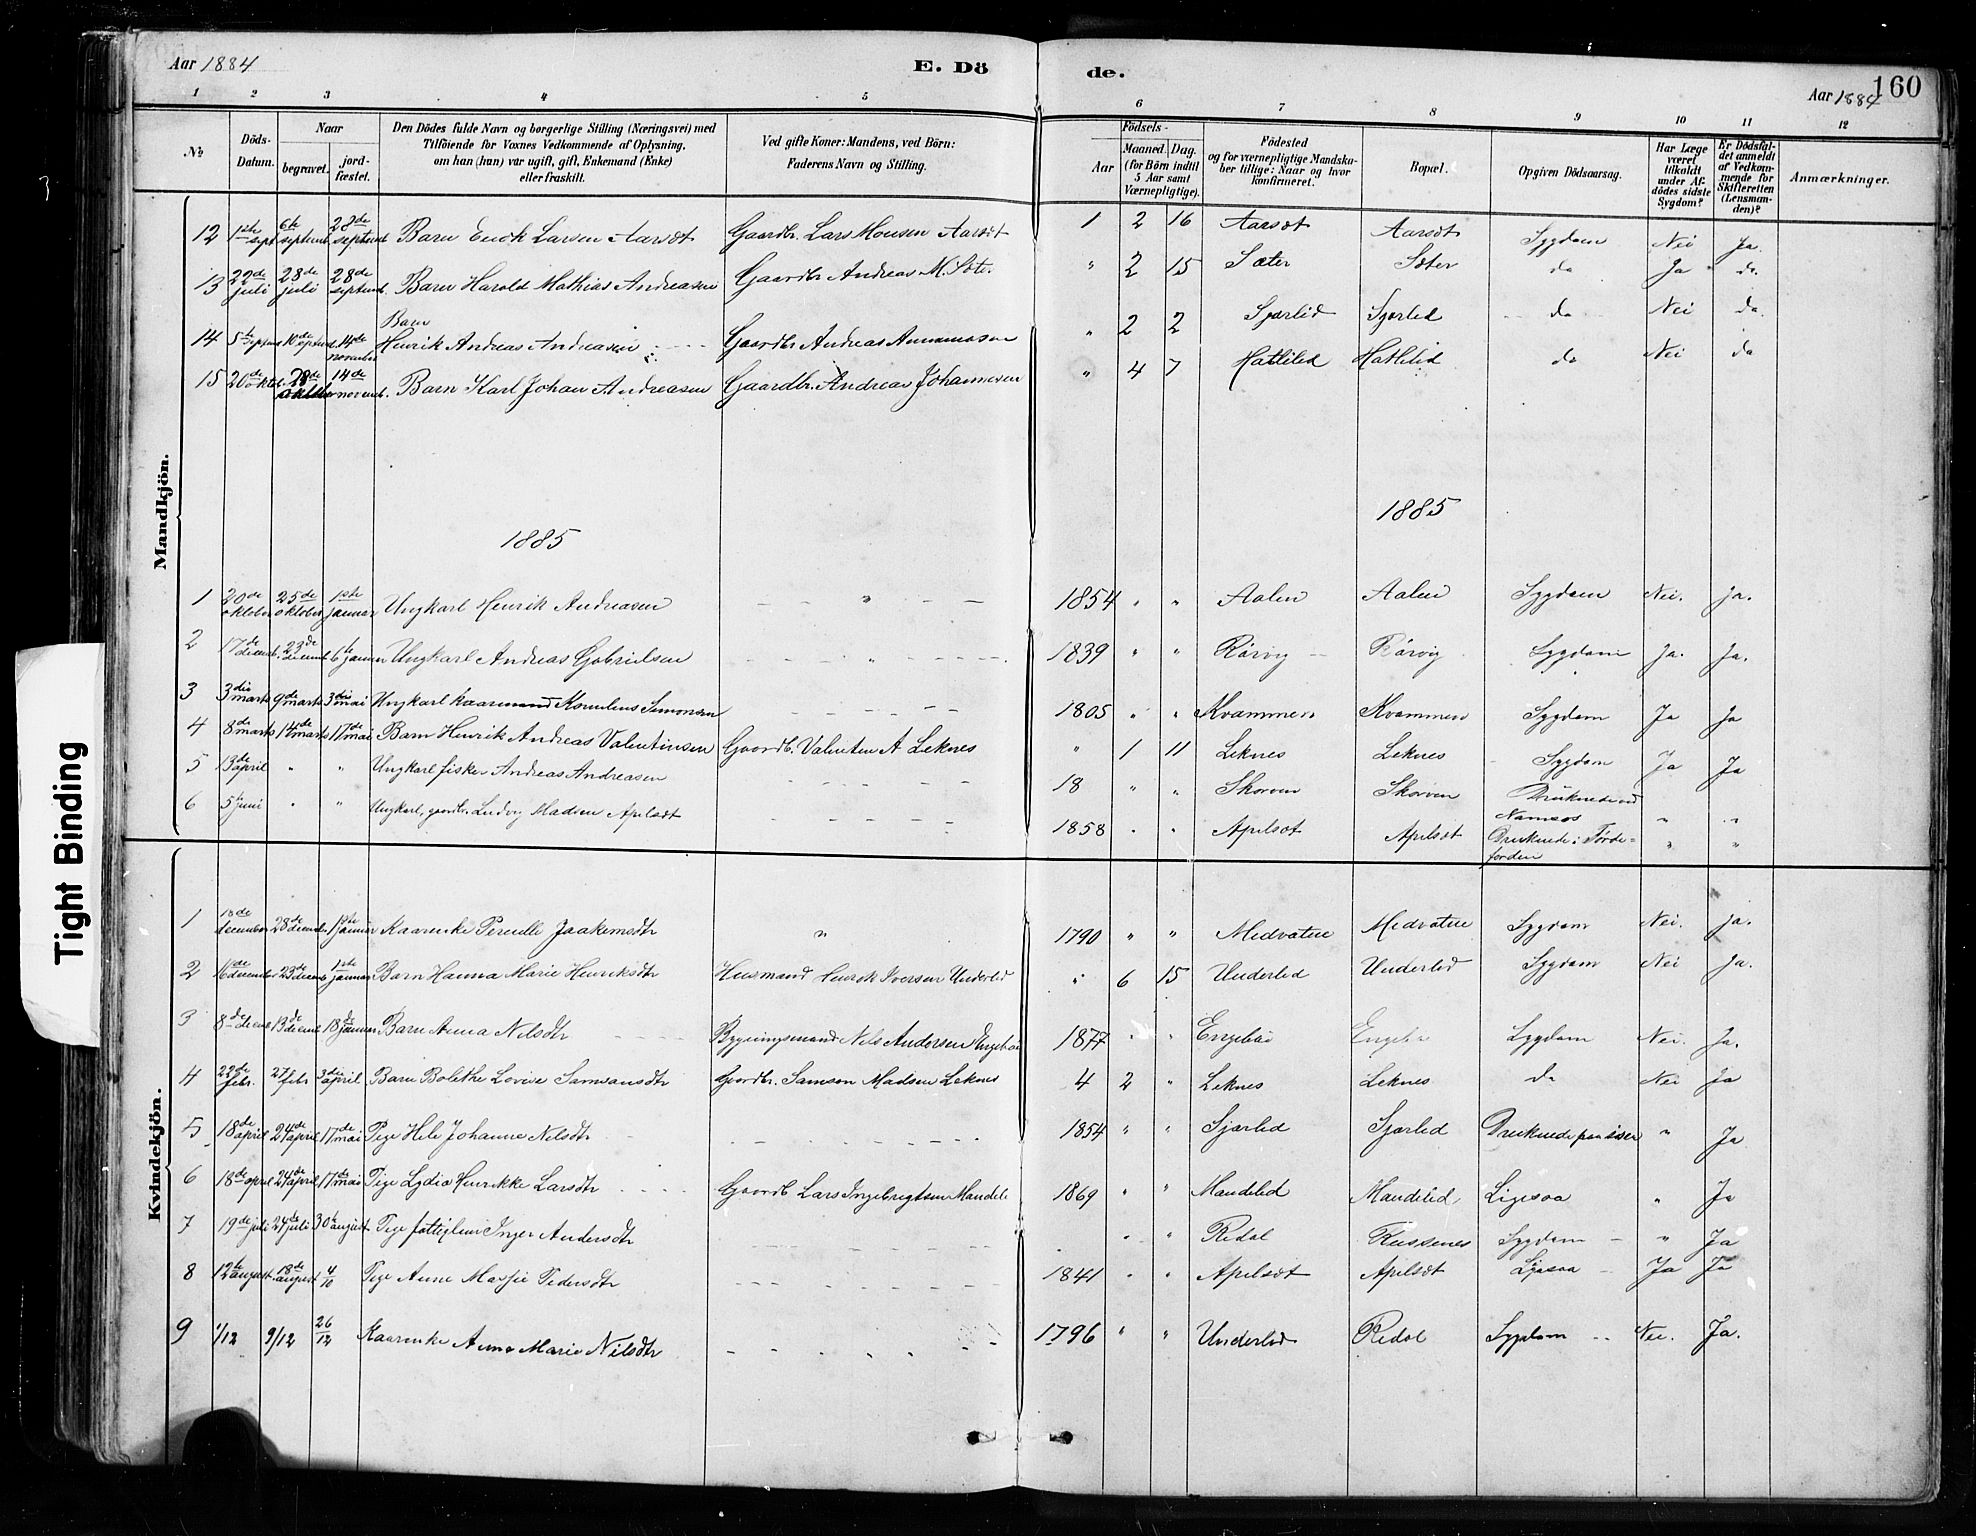 Aar 1884
E. Dö
de.
160
Aar 1884
1 2 3 4 5 6 7 8 9 10 11 12
№
Döds-
Datum.
Naar
begravet.
jord-
fæstet.
Den Dödes fulde Navn og borgerlige Stilling (Næringsvei) med
Tilföiende for Voxnes Vedkommende af Oplysning,
om han (hun) var ugift, gift, Enkemand (Enke)
eller fraskilt.
Ved gifte Koner: Mandens, ved Börn:
Faderens Navn og Stilling.
Födsels-
Aar
Maaned.
Dag.
(for Börn indtil
5 Aar samt
Værnepligtige).
Födested
og for værnepligtige Mandska-
ber tillige: Naar og hvor
konfirmeret.
Bopæl.
Opgiven Dödsaarsag.
Har Læge
været
tilkaldt
under Af-
dödes sidste
Sygdom?
Er Dödsfal-
det anmeldt
af Vedkom-
mende for
Skifteretten
(Lensman-
den)?
Anmærkninger.
Mandkjön.
12 1ste sept 6te septemb 28de septemb Barn Erick Larsen Aarsdt Gaardbr. Lars Monsen Aarsdt 1 2 16 Aarsdt Aarsdt Sygdom Nei Ja.
13 22de juli 28de juli 28de septemb. Barn Harold Mathias Andreasen Gaardbr Andreas M. Sæter " 2 15 Sæter Sæter do Ja do.
14 5te septemb 10de septemb 14de november Barn
Henrik Andreas Andreasen Gaardbr Andreas " 2 2 Sjørlid Sjørlid do Nei do
15 20de oktob. 28de oktober 14de novemb. Barn Karl Johan Andreasen Gaardbr. Andreas Johannesen " 4 7 Hatlelid Hatlelid do Nei do
1885
1885
1 20de oktober 25de oktober 1ste januar Ungkarl Henrik Andreasen " 1854 " " Aalen Aalen Sygdom Nei. Ja.
2 17de decemb. 23de decemb 6te januar Ungkarl Andreas Gabrielsen " 1839 " " Rørvig Rørvig Sygdom Ja. Ja.
3 3die marts 9de marts 3die mai Ungkarl Kornelius Simonsen 1805 " " Kvammen Kvammen Sygdom Ja Ja
4 8de marts 14de marts 17de mai Barn Henrik Andreas Valentinsen Gaardb. Valentin A Leknes " 1 11 Leknes Leknes Sygdom Ja Ja
5 13de april " " Ungkarl fisker Andreas Andreasen 18 " " Skorven Skorven Druknede ved
Namsos " "
6 5te juni " " Ungkarl, gaardbr. Ludvig Madsen Apelsdt 1858 " " Apelsdt Apelsdt Druknede i Førde-
fjorden " "
Kvindekjön.
1 december 28de decemb. 1ste januar Kaarenke Pernille Joakemsdtr " 1790 " " Medvatne Medvatne Sygdom Nei. Ja.
2 16de december 23de decemb 1ste januar Barn Hanna Marie Henriksdtr Husmand Henrik Iversen Underlid " 6 15 Underlid Underlid Sygdom Nei Ja.
3 8de decemb 13de decemb 18de januar Barn Anna Nilsdtr Bygningsmand Nils Andersen Engebø 1877 " " Engebø Engebø Sygdom Nei. Ja.
4 22de febr. 27 febr 3die april Barn Bolethe Lovise Samsonsdtr Gaardbr. Samson Madsen Leknes 4 2 " Leknes Leknes do Nei Ja
5 18de april 24de april 17de mai Pige Hele Johanne Nelsdtr 1854 " " Sjørlid Sjørlid Druknede paa isen " Ja
6 18de april 24de april 17de mai Pige Lydia Henrikke Larsdtr Gaardb Lars Ingebregtsen Mandeli 1869 " " Mandelid Mandelid Ligesaa " Ja
7 19de juli 24de juli 30te august Pige fattiglem Inger Andersdtr " " Redal Russenes Sygdom " Ja
8 12te august. 18de august 4/10 Pige Anne Marie Pedersdtr 1841 " " Apelsdt Apelsdt Ligesaa Ja Ja
9 1/12 9/12 26/12 Kaarenke Anne Marie Nilsdtr 1796 " " Underlid Redal Sygdom Nei. Ja.
Tight Binding